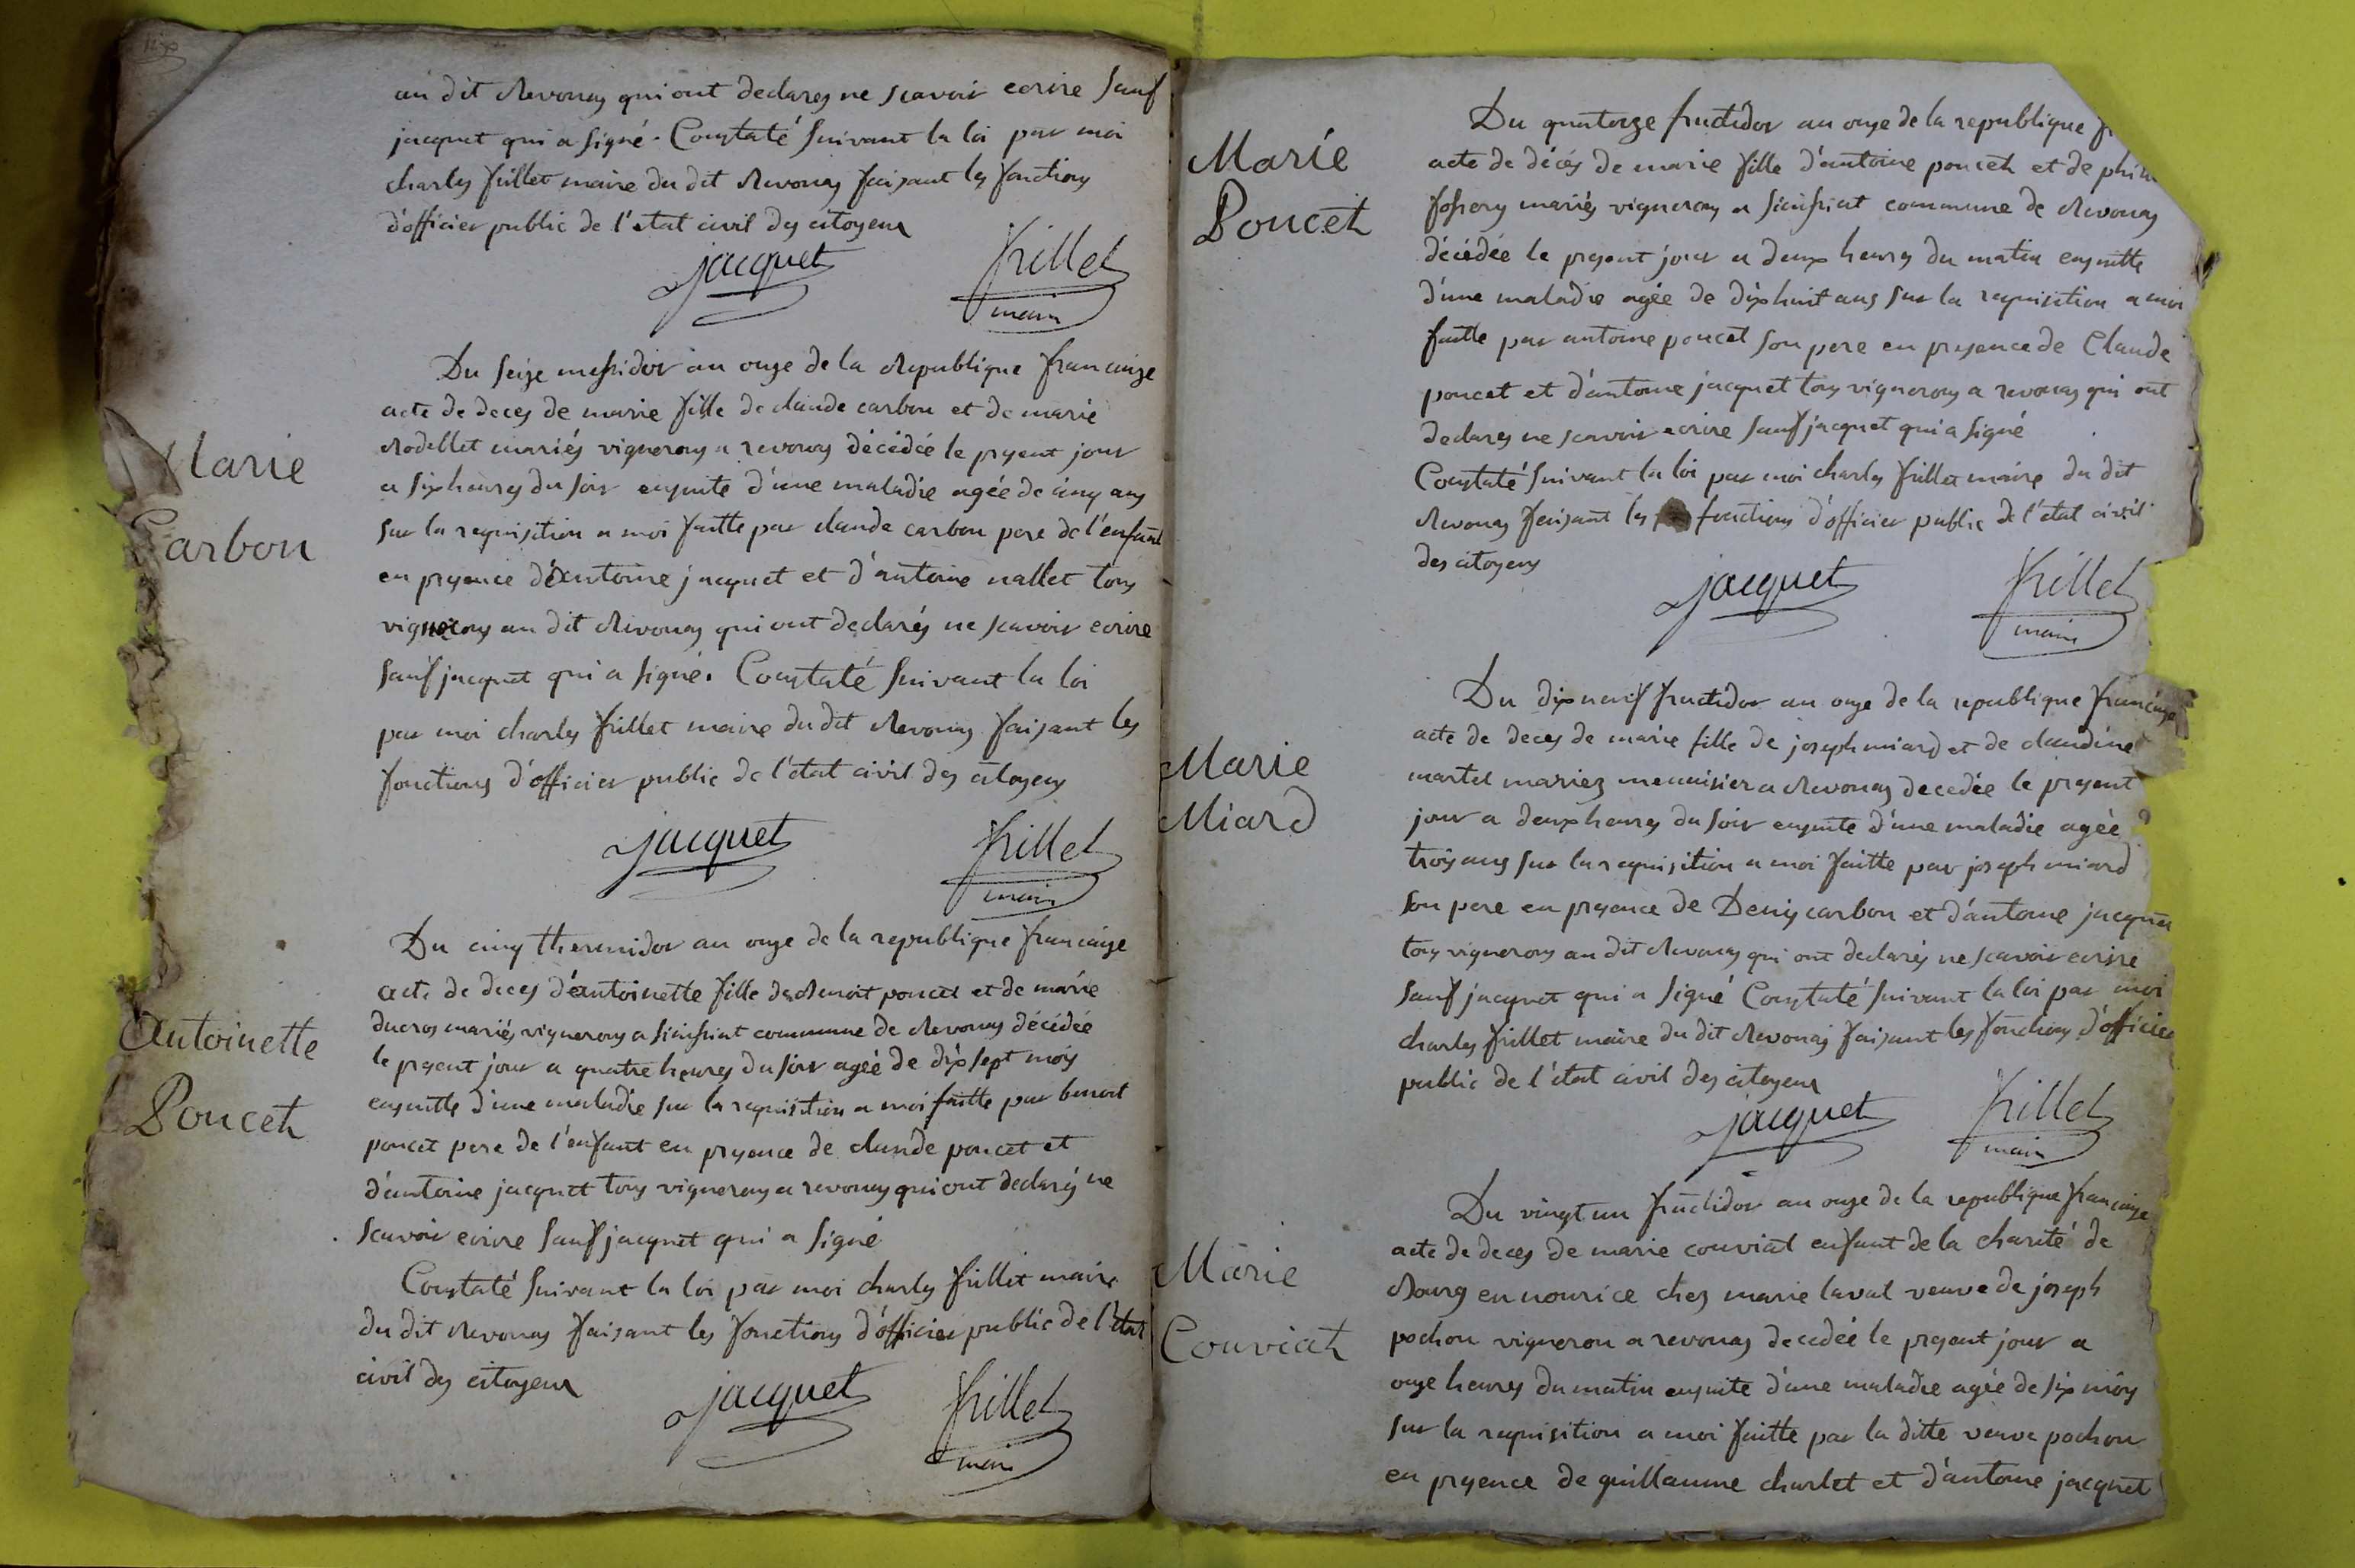 au dit Revonas qui ont declares ne scavoir ecrire sauf
jacquet qui a signé. Constaté suivant la loi par moi
charles frillet maire du dit Revonas faisant les fonctions
d'officier public de l'etat civil des citoyens
jacquet frillet
maire
Du seize messidor an onze de la Republique francaise
Marie
Carbon
acte de deces de marie fille de claude carbon et de marie
Rodellet mariés vignerons a revonas décédée le present jour
a six heures du soir ensuite d'une maladie agée de cinq ans
sur la requisition a moi faitte par claude carbon pere de l'enfant
en presence d'antoine jacquet et d'antoine nallet tous
vignerons au dit Revonas qui ont declarés ne scavoir ecrire
sauf jacquet qui a signé. Constaté suivant la loi
par moi charles frillet maire du dit Revonas faisant les
fonctions d'officier public de l'etat civil des citoyens
jacquet frillet
maire
Du cinq thermidor an onze de la republique francaise
Antoinette
Poucet
acte de deces d'antoinette fille de Benoit poucet et de marie
ducros mariés vignerons a commune de Revonas décédée
le present jour a quatre heures du soir agée de dix sept mois
ensuitte d'une maladie sur la requisition a moi faitte par benoit
poucet pere de l'enfant en presence de claude poucet et
d'antoine jacquet tous vignerons a revonas qui ont declarés ne
scavoir ecrire sauf jacquet qui a signé
Constaté suivant la loi par moi charles frillet maire
du dit Revonas faisant les fonctions d'officier public de l'etat
civil des citoyens
jacquet frillet
maire
Marie
Poucet
Du quatorze fructidor an onze de la republique
acte de décés de marie fille d'antoine poucet et de
mariés vignerons a commune de Revonas
décédée le present jour a deux heures du matin ensuitte
d'une maladie agée de dixhuit ans sur la requisition a moi
faitte par antoine poucet son pere en presence de Claude
poucet et d'antoine jacquet tous vignerons a revonas qui ont
declares ne scavoir ecrire sauf jacquet qui a signé
Constaté suivant la loi par moi charles frillet maire du dit
Revonas faisant les fonctions d'officier public de l'etat civil
des citoyens
jacquet frillet
maire
Marie
Miard
Du dix neuf fructidor an onze de la republique francaise
acte de deces de marie fille de joseph miard et de claudine
martel mariez menuisier a Revonas decedée le present
jour a deux heures du soir ensuite d'une maladie agée
trois ans sur la requisition a moi faitte par joseph miard
son pere en presence de Denis carbon et d'antoine jacquet
tous vignerons au dit Revonas qui ont declarés ne scavoir ecrire
sauf jacquet qui a signé Constaté suivant la loi par moi
charles frillet maire du dit Revonas faisant les fonctions d'officier
public de l'état civil des citoyens
jacquet frillet
maire
Marie
Couviat
Du vingt un fructidor an onze de la republique francaise
acte de deces de marie couviat enfant de la charité de
Bourg en nourice chez marie laval veuve de joseph
pochon vigneron a revonas decedée le present jour a
onze heures du matin ensuite d'une maladie agée de six mois
sur la requisition a moi faitte par la ditte veuve pochon
en presence de guillaume charlet et d'antoine jacquet